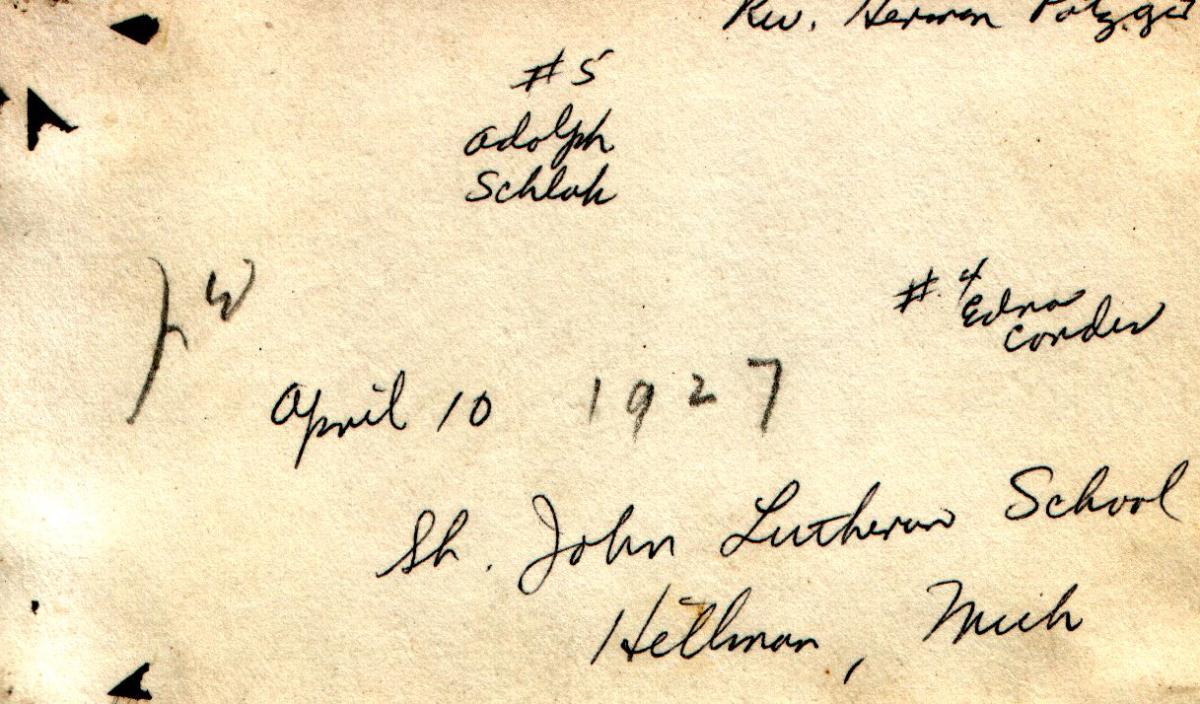 Rev. Herman
#5
Adolph
Schlak
#.4
Edna
Corder
W
April 10 1927
St. John Lutheran School
Hillman, Mich